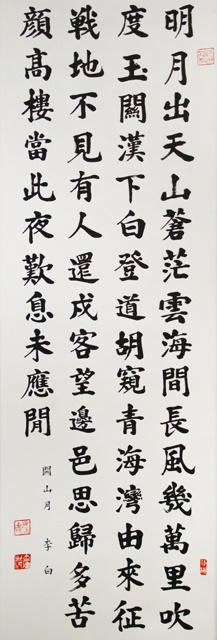 明月出天山蒼茫雲海間長風幾萬里吹
度玉關漢下白登道胡窺青海灣由來征
戰地不見有人還戍客望邊邑思歸多苦
顏高樓當此夜歎息未應閒
關山月 李白